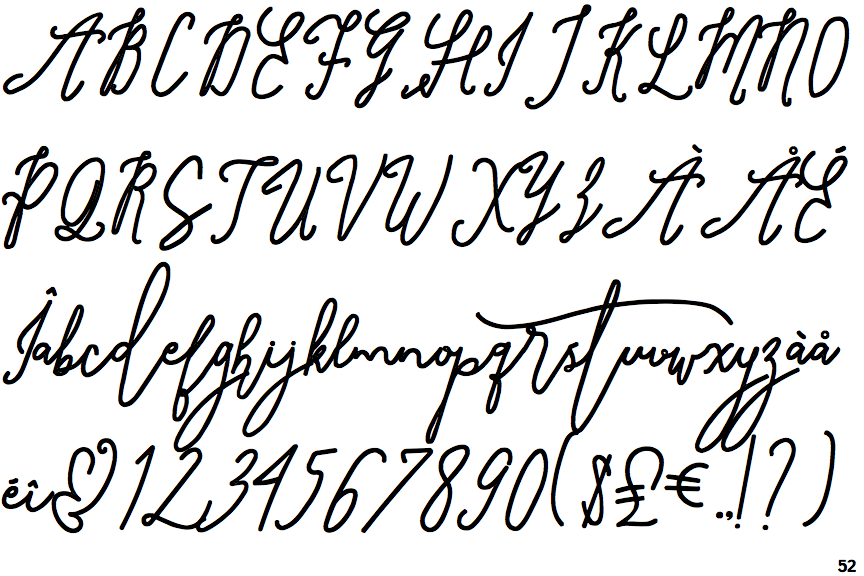 ABCDEFGHIJKLMNO
PQRSTUVWXYZÀÅÉ
Îabcdefghijklmnopqrstuvwxyzàå
éî&1234567890($£€.,!?)
52